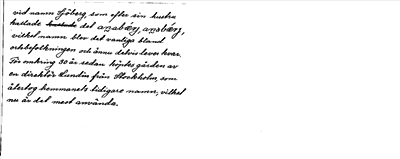 vid namn Sjöberg, som efter sin hustru
kallade det
vilket namn blev det vanliga bland
ortsbefolkningen och ännu delvis lever kvar.
För omkring 30 år sedan köptes gården av
en direktör Lundin från Stockholm, som
återtog hemmanets tidigare namn, vilket
nu är det mest använda.